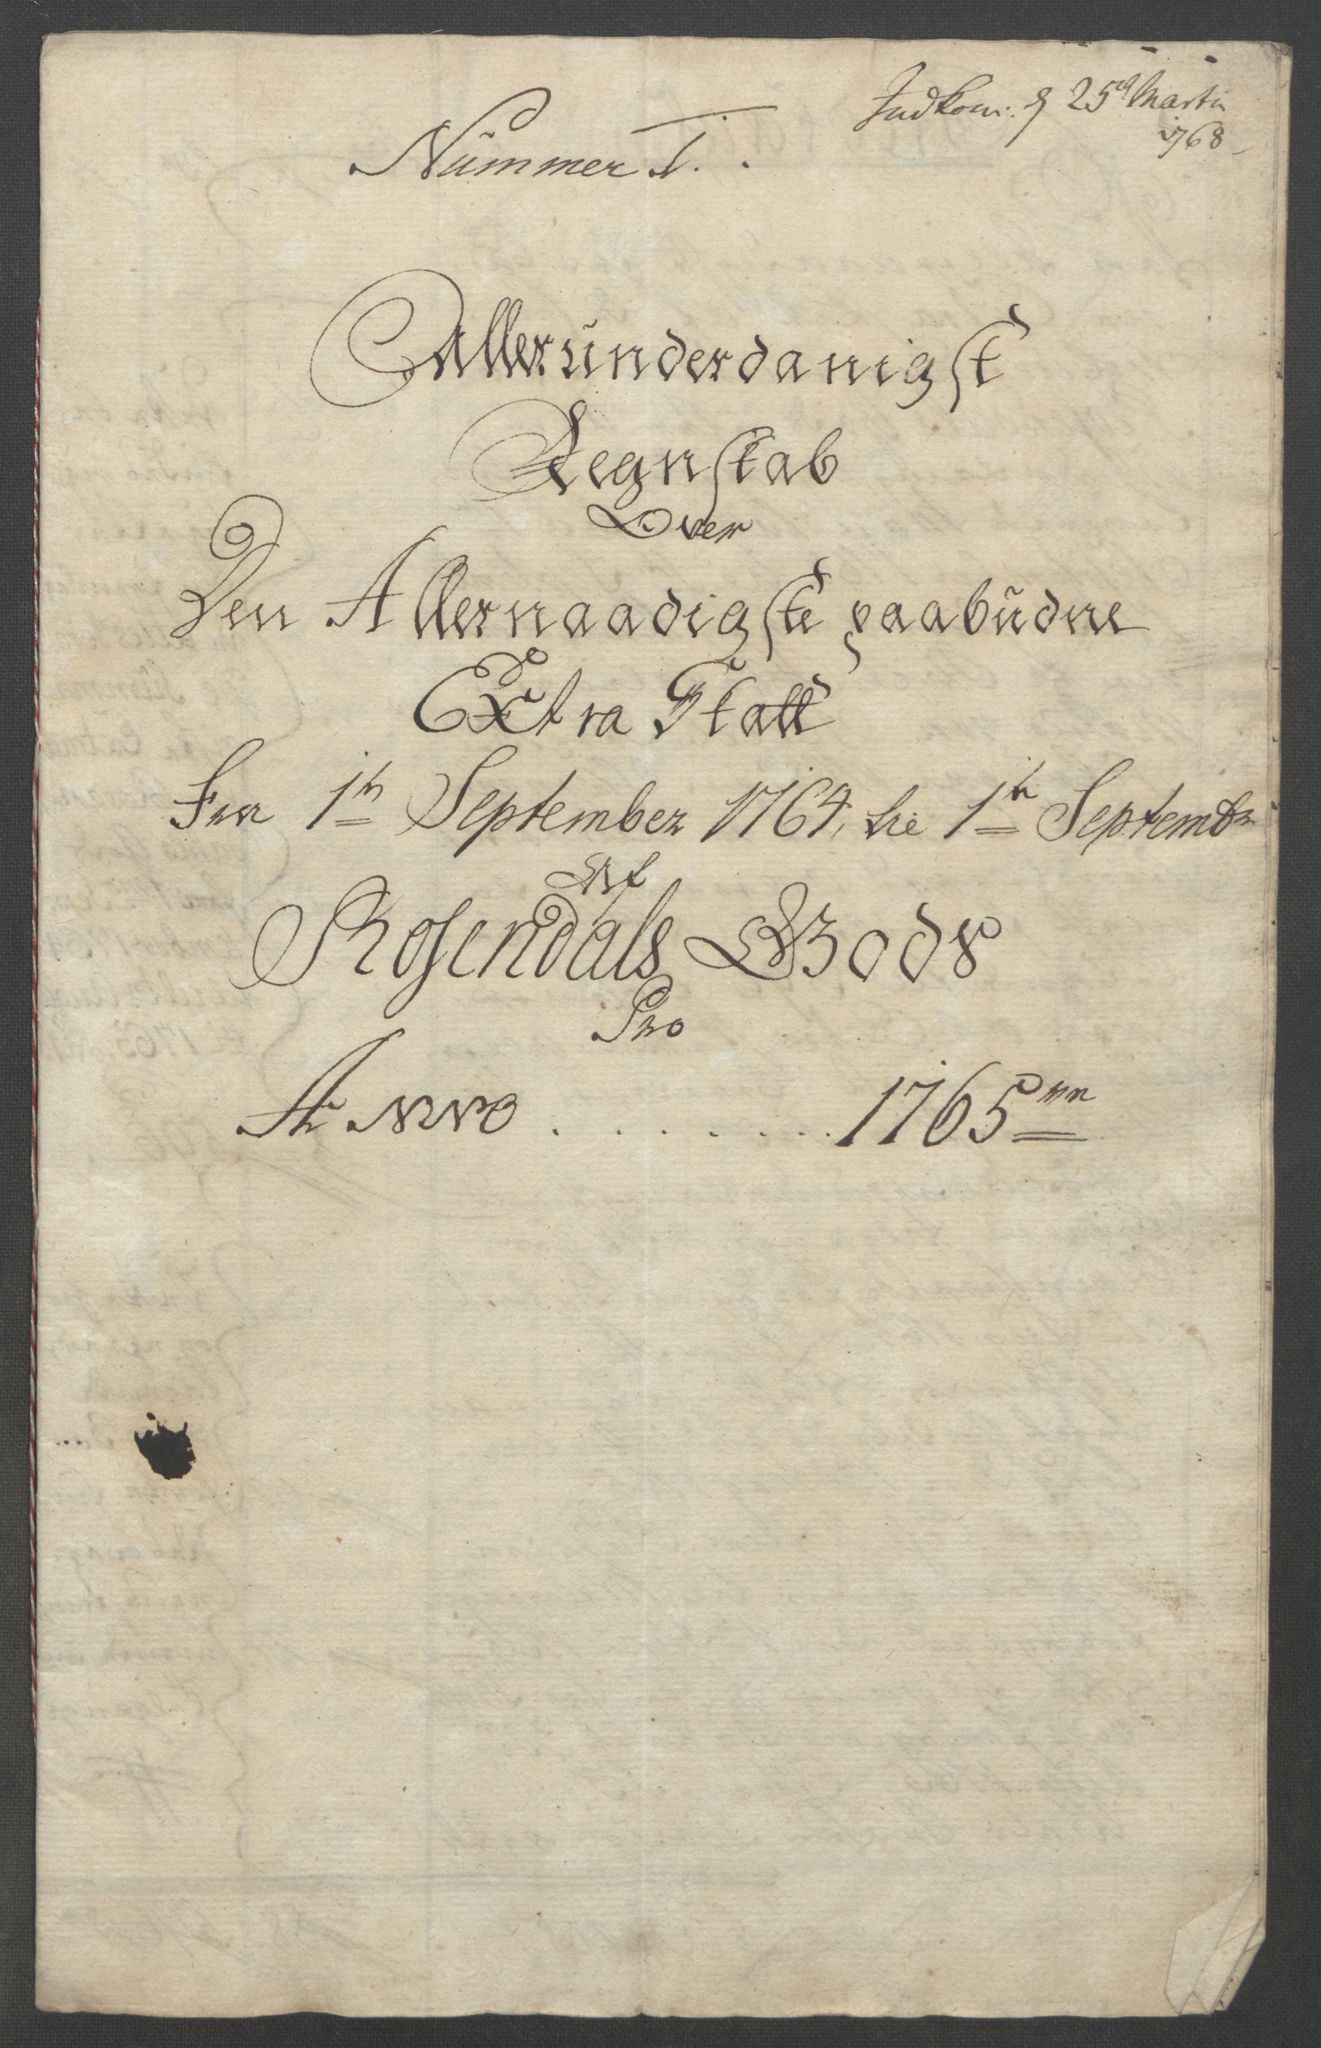 Indkom: d 25d Martii
1768
Nümmer I.
Alleründerdanigst
Regnskab
Over
Den Allernaadigste paabüdne
Extra Skatt
Fra 1th September 1764, tie 1th Septembr
Af
Rosendals Gods
Pro
Anno . . . . . . . 1765